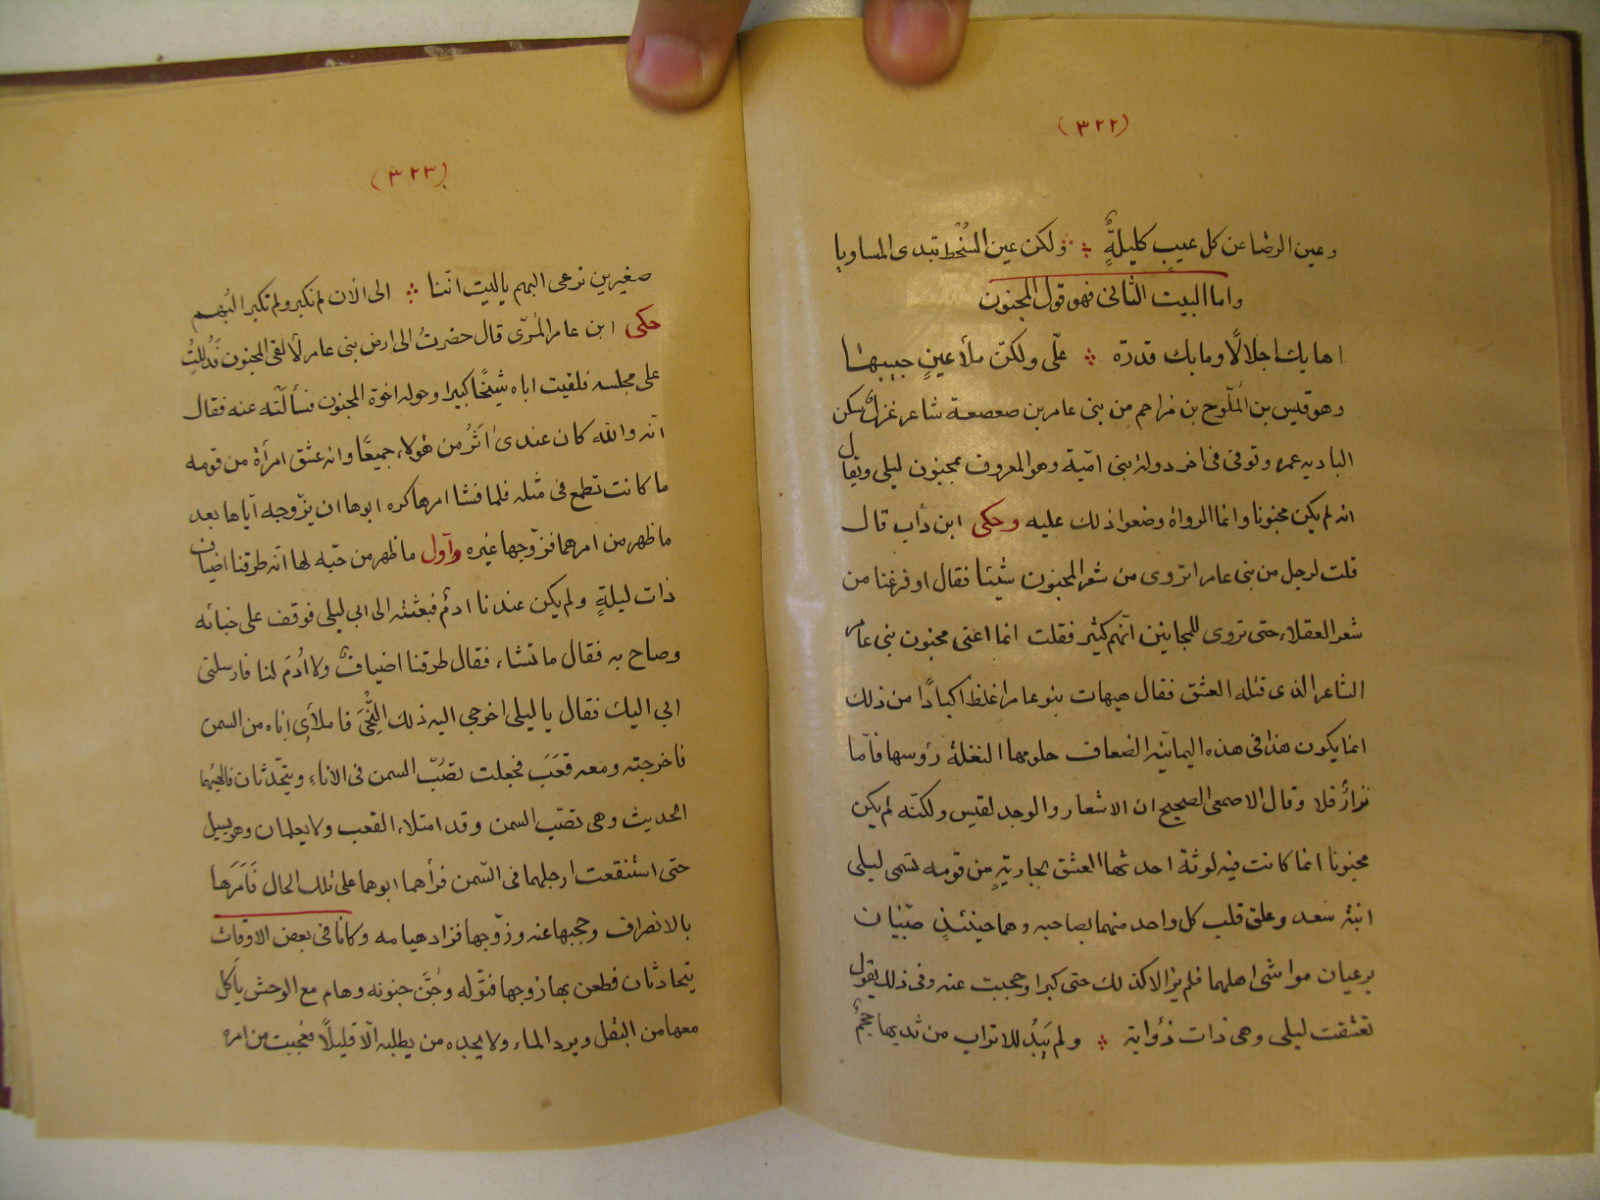 (٣٢٢)
وعين الرضا عن كل عيبٍ كليلةٌ ولكن عين السُخْط تبدى المساويا
واما البيت الثانى فهو قول المجنون
اهابك اجلالًا وما بك قدرة علّى ولكنّ ملأ عينٍ حبيبها
وهو قيس بن المُلّوح بن مزاحم من بنى عامر بن صعصعة شاعر غزلٌ سكن
الباديه عمره وتوفى فى اخر دولة بنى اميّة وهو المعروف بمجنون ليلى ويقال
انه لم يكن مجنونا وانما الرواة وضعوا ذلك عليه وحكى ابن دأب قال
قلت لرجل من بنى عامر اتروى من شعر المجنون شيئا فقال اوفرغنا من
شعر العقلاء حتى نروى للمجانين انّهم كثير فقلت انما اعنى مجنون بنى عامر
الشاعر الذى قتله العشق فقال هيهات بنو عامر اغلظ اكبادًا من ذلك
انما يكون هذا فى هذه اليمانيّه الضعاف حلومها النغلة رؤسها فأمّا
نزارٌ فلا وقال الاصمعى الصحيح ان الاشعار والوجد لقيس ولكنّه لم يكن
مجنونا انما كانت فيه لوثة احدثها العشق بجاريةٍ من قومه تسمى ليلى
ابنة سعد وعلق قلب كل واحد منهما بصاحبه وهما حينئذٍ صبّيان
يرعيان مواشى اهلهما فلم يزالا كذلك حتى كبرا وحجبت عنه وفى ذلك يقول
تعشقت ليلى وهى ذات ذؤابة ولم يَبْدُ للاتراب من ثديها حجمٌ
(٣٢٣)
صغيرين نرعى البهم ياليت انّنا الى الآن لم نكبر ولم تكبر البُهم
حكى ابن عامر المُرّى قال حضرتُ الى ارض بنى عامر لألقى المجنون فَدُلِلتُ
على مجلسه فلقيت اباه شيخًا كبيرا وحوله اخوة المجنون فسألته عنه فقال
انّه والله كان عندى اٰثَرُ من هٰولاء جميعًا وانه عشق امرأة من قومه
ما كانت تطمع فى مثله فلما فشا امرها كره ابوها ان يزّوجه ايّاها بعد
ما ظهر من امرهما فزّوجها غيره وآول ما ظهر من حبّه لها انّه طرقنا اضياف
ذات ليلةٍ ولم يكن عندنا ادمٌ فبعثته الى ابى ليلى فوقف على خبائه
وصاح به فقال ما تشاء فقال طرقنا اضيافٌ ولا أدُمَ لنا فارسلنى
ابى اليك فقال يا ليلى اخرجى اليه ذلك النِّحْىَ فاملأى اناه من السمن
فاخرجته ومعه قعَب فجعلت تصُبّ السمن فى الاناء ويتحّدثان فالهيهما
الحديث وهى تصّب السمن وقد امتلاء القعب ولا يعلمان وهو يسيل
حتى استنقعت ارجلهما فى السّمن فرأهما ابوهما على تلك الحال فَاَمَرَها
بالانصراف وحجبها عنه وزوّجها فزاد هيامه وكانا فى بعض الاوقات
يتحادثان فطعن بها زوجها فتوّله وجُنَّ جنونه وهام مع الوحش يأكل
معها من البقل ويرد الماء ولا يجده من يطلبه الّا قليلًا فعجبت من امره